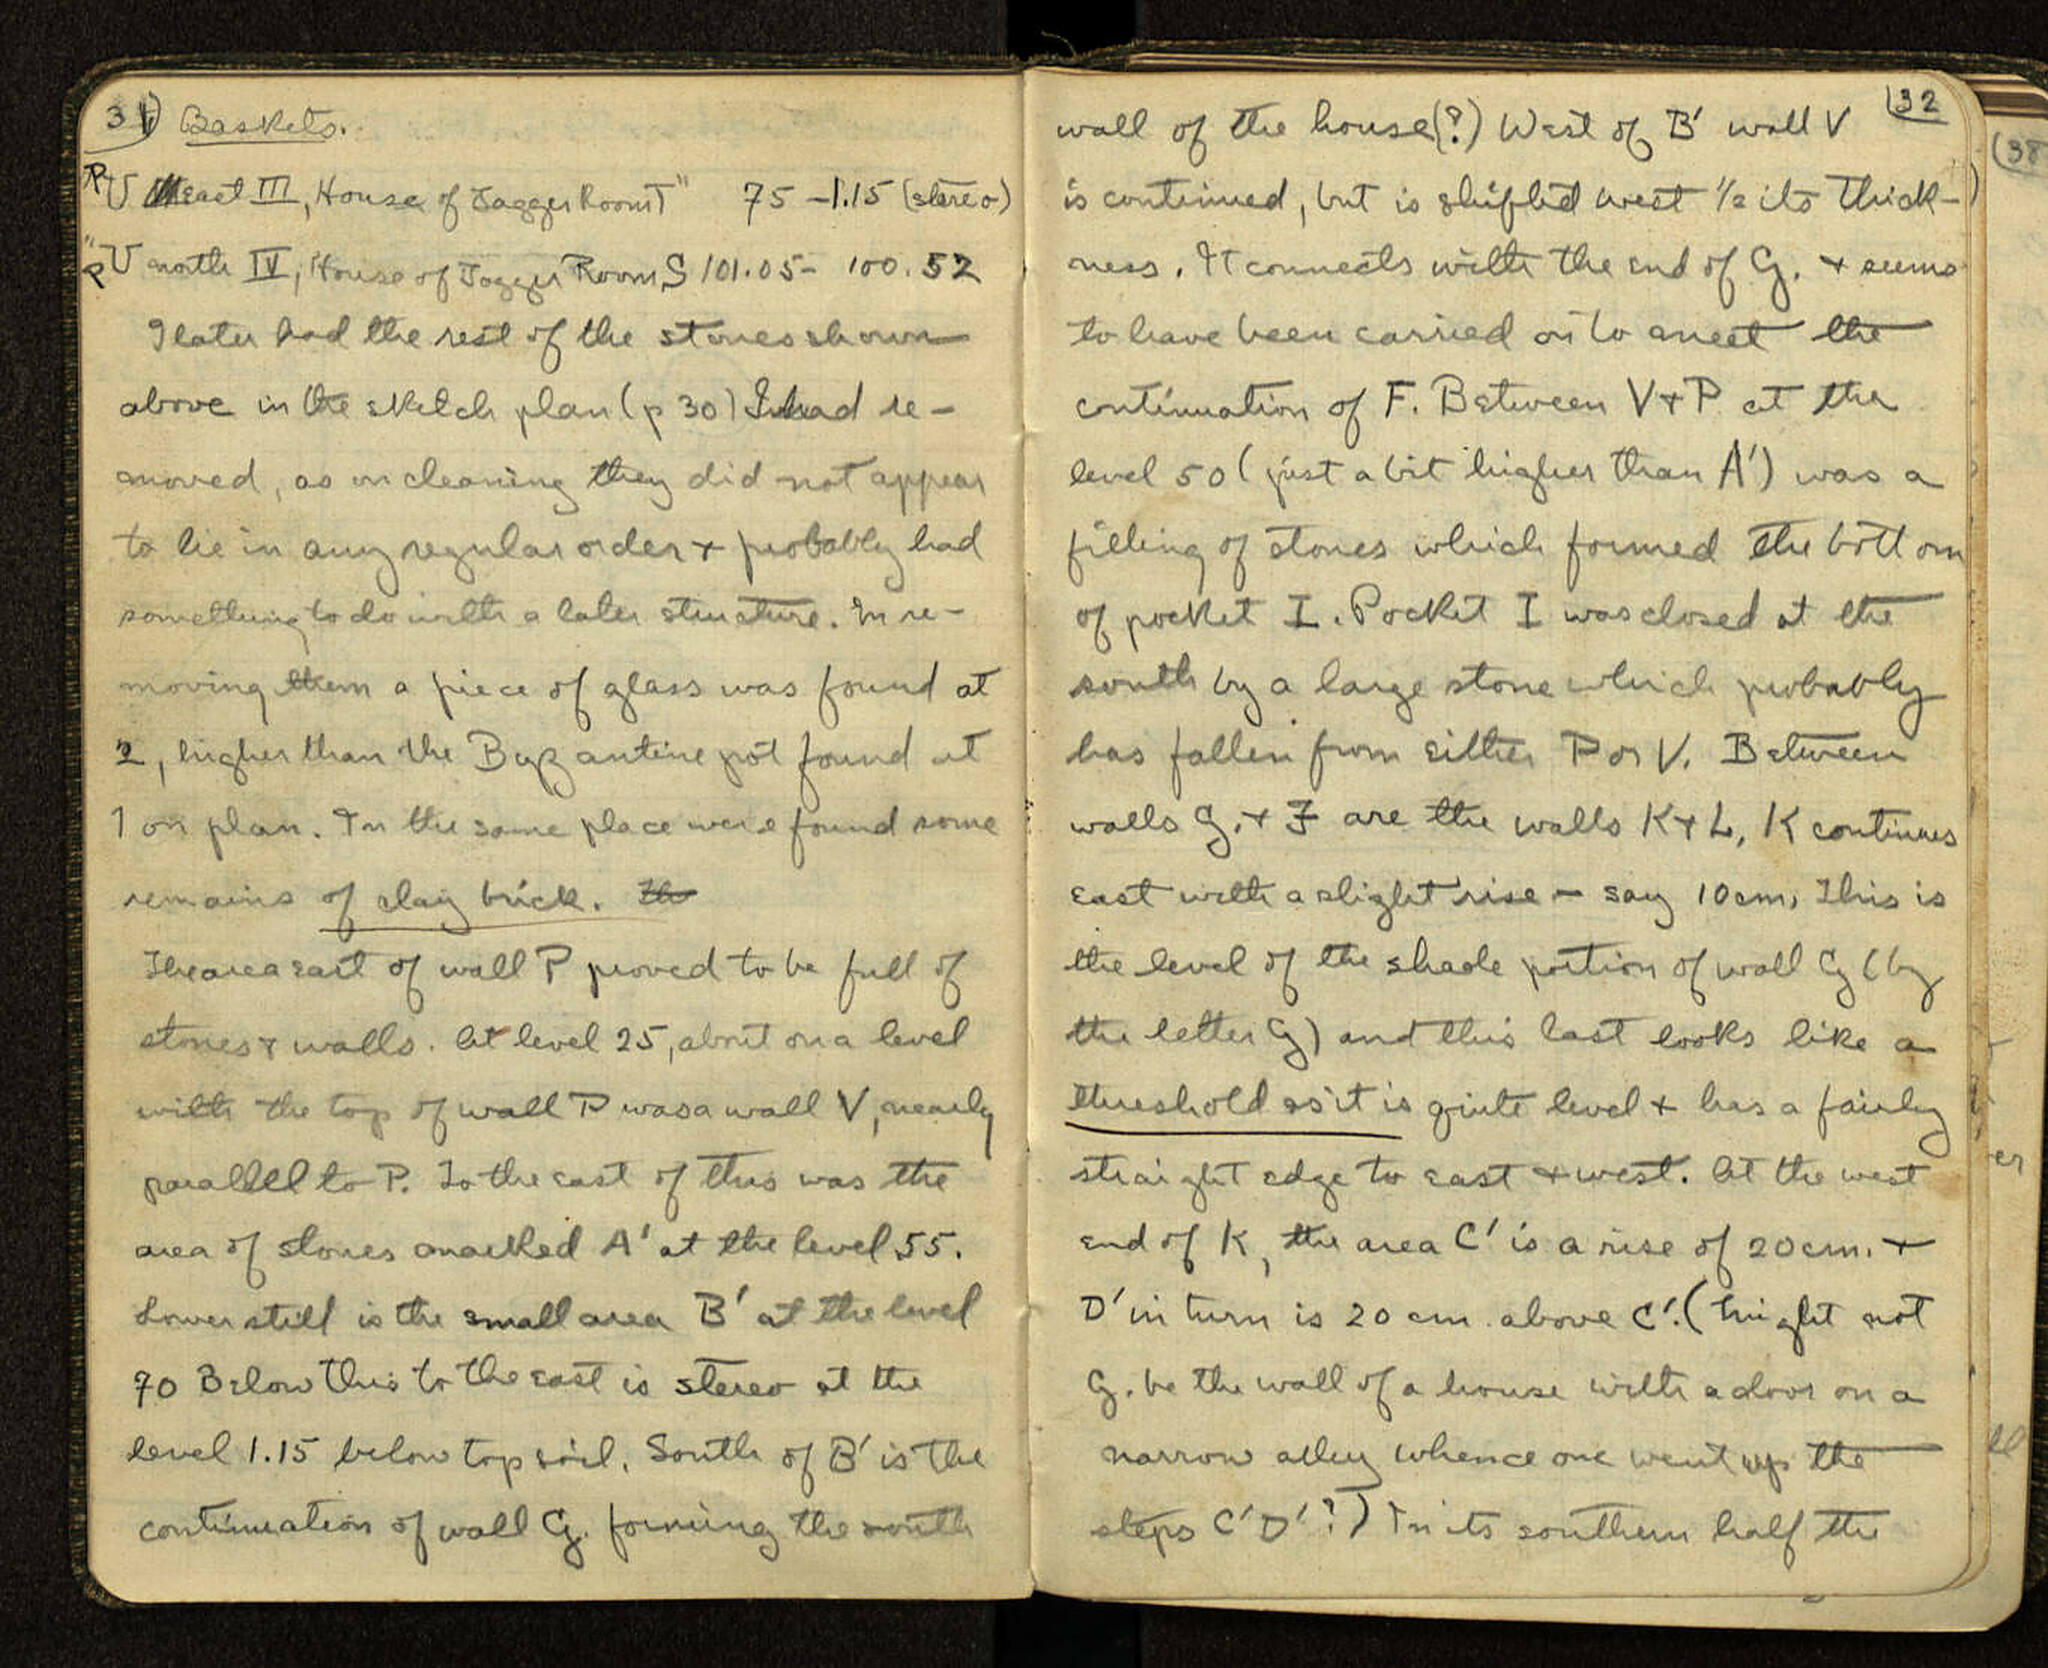 31) Baskets.
PU east III, House of Jagger Room T" 75 - 1.15 (stereo)
"PU north IV, House of Jagger Room S 101.05 - 100.52
I later had the rest of the stones shown
above in the sketch plan (p 30) had re-
moved, as on cleaning they did not appear
to lie in any regular order + probably had
something to do with a later structure. In re-
moving them a piece of glass was found at
2, higher than the Byzantine pot found at
1 on plan. In the same place were found some
remains of clay brick. The
The area east of wall P proved to be full of
stones + walls. At level 25, about on a level
with the top of wall P was a wall V, nearly
parallel to P. To the east of this was the
area of stones marked A' at the level 55.
Lower still is the small area B' at the level
70 Below this to the east is stereo at the
level 1.15 below top soil. South of B' is the
continuation of wall G. forming the south
(32
wall of the house (?) West of B' wall V
is continued, but is shifted west 1/2 its thick-
ness. It connects with the end of G. + seems
to have been carried on to meet the
continuation of F. Between V + P at the
level 50 (just a bit higher than A') was a
filling of stones which formed the bottom
of pocket I. Pocket I was closed at the
south by a large stone which probably
has fallen from either P or V. Between
walls G. + F are the walls K + L, K continues
east with a slight rise - say 10 cm, This is
the level of the shade portion of wall G (by
the letter G) and this last looks like a
threshold as it is quite level + has a fairly
straight edge to east + west. At the west
end of K, the area C' is a rise of 20 cm. +
D' in turn is 20 cm. above C'. (might not
G. be the wall of a house with a door on a
narrow alley whence one went up the
steps C' D' ?) In its southern half the
(38
er